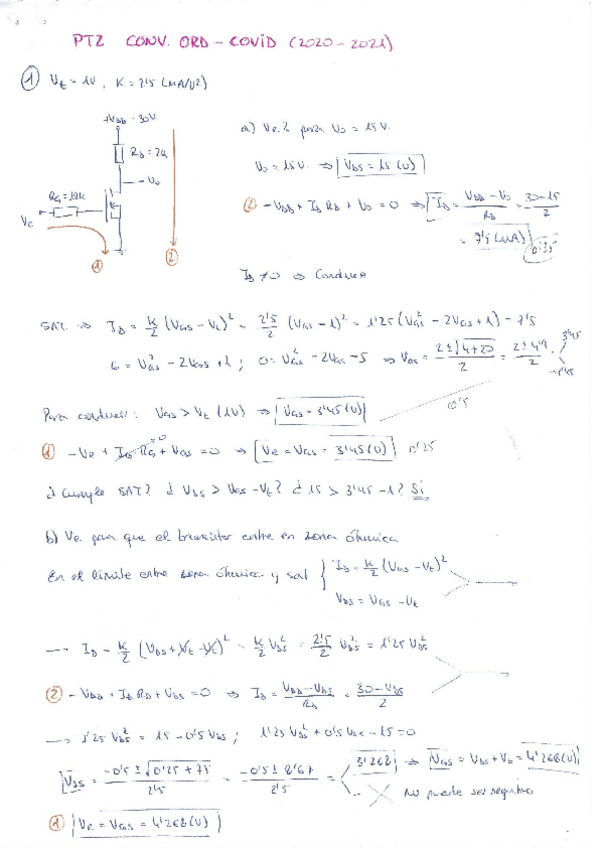 PT2 CONV. ORD - COVID (2020-2021)
① Vt = 1V, K = 2'5 (mA/V2)
+VDD = 30V
RD = 2k
Vo
RG = 10k
Ve
①
②
a) Ve? para Vo = 15V.
Vo = 15V. ⇒ VDS = 15 (V)
② -VDD + ID RD + Vo = 0 ⇒ ID = (VDD - Vo)/RD = (30-15)/2
= 7'5 (mA)
ID ≠ 0 ⇒ Conduce
SAT. ⇒ ID = K/2 (VGS - Vt)² = 2'5/2 (VGS - 1)² = 1'25 (VGS² - 2VGS + 1) = 7'5
6 = VGS² - 2VGS + 1 ; 0 = VGS² - 2VGS - 5 ⇒ VGS = (2 ± √(4+20))/2 = (2 ± 4'9)/2 3'45 -1'45
Para conducir: VGS > Vt (1V) ⇒ VGS = 3'45 (V)
0'5
① -Ve + IG RG + VGS = 0 ⇒ Ve = VGS = 3'45 (V) 0'25
¿Cumple SAT? ¿VDS > VGS - Vt? ¿15 > 3'45 - 1? Si
b) Ve para que el transistor entre en zona óhmica
En el límite entre zona óhmica y sat { ID = K/2 (VGS - Vt)²
VDS = VGS - Vt
→ ID = K/2 (VDS + Vt - Vt)² = K/2 VDS² = 2'5/2 VDS² = 1'25 VDS²
② -VDD + ID RD + VDS = 0 ⇒ ID = (VDD - VDS)/RD = (30 - VDS)/2
→ 1'25 VDS² = 15 - 0'5 VDS ; 1'25 VDS² + 0'5 VDS - 15 = 0
VDS = (-0'5 ± √(0'25 + 75))/2'5 = (-0'5 ± 8'67)/2'5 = 3'268 ⇒ VGS = VDS + Vt = 4'268 (V)
No puede ser negativo
① Ve = VGS = 4'268 (V)